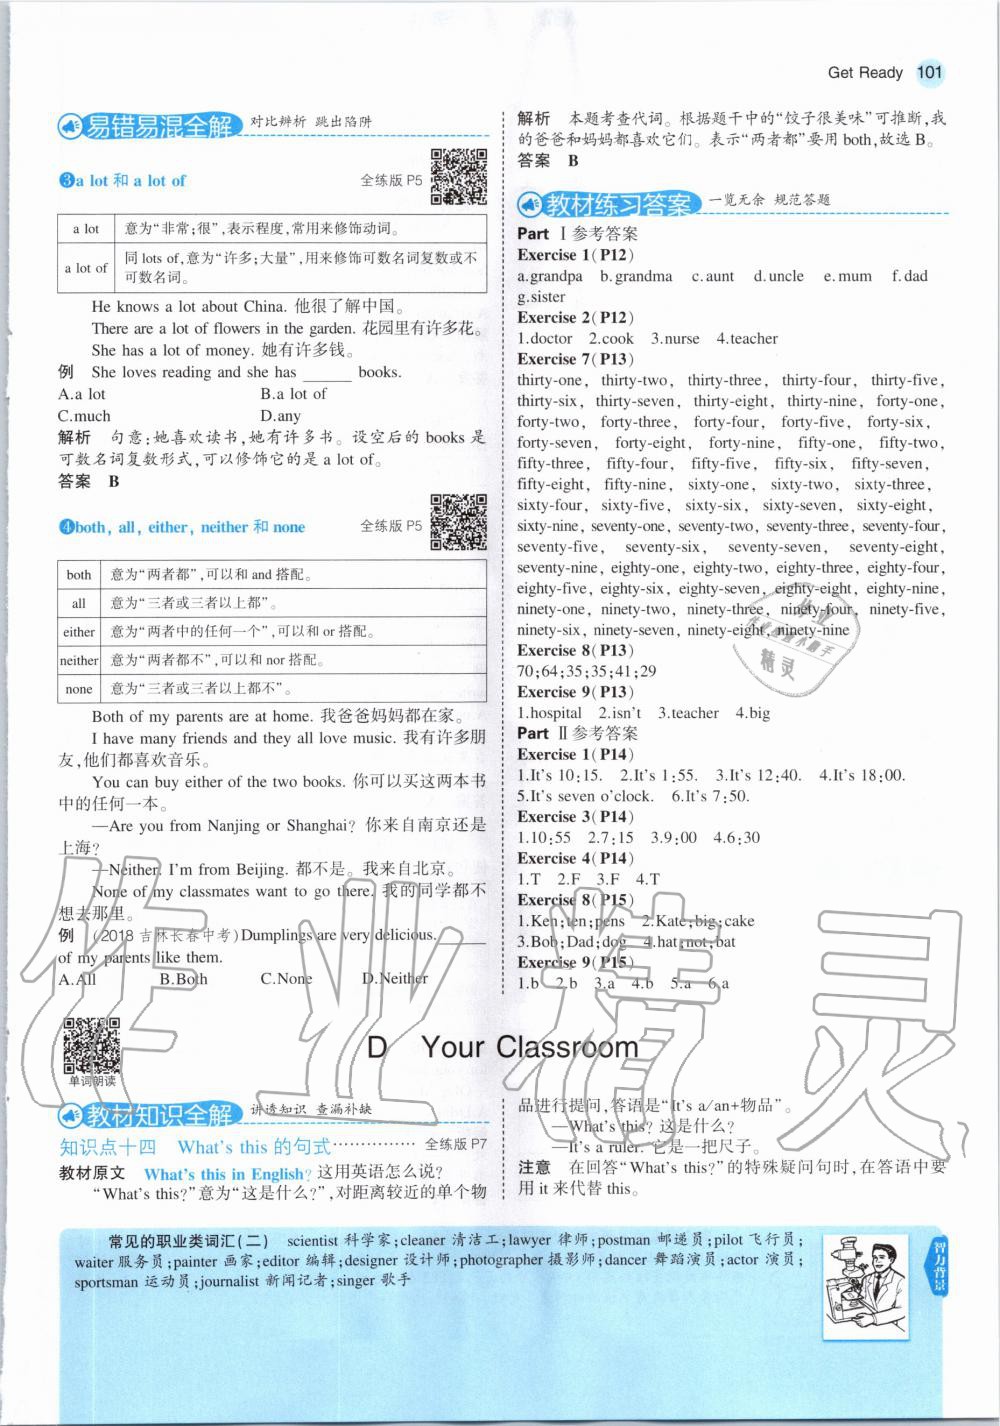 Get Ready 101
易错易混全解 对比辨析 跳出陷阱
❸a lot 和 a lot of 全练版 P5
a lot 意为“非常;很”,表示程度,常用来修饰动词。
a lot of 同 lots of,意为“许多;大量”,用来修饰可数名词复数或不
可数名词。
He knows a lot about China. 他很了解中国。
There are a lot of flowers in the garden. 花园里有许多花。
She has a lot of money. 她有许多钱。
例 She loves reading and she has ______ books.
A.a lot B.a lot of
C.much D.any
解析 句意:她喜欢读书,她有许多书。设空后的 books 是
可数名词复数形式,可以修饰它的是 a lot of。
答案 B
❹both, all, either, neither 和 none 全练版 P5
both 意为“两者都”,可以和 and 搭配。
all 意为“三者或三者以上都”。
either 意为“两者中的任何一个”,可以和 or 搭配。
neither 意为“两者都不”,可以和 nor 搭配。
none 意为“三者或三者以上都不”。
Both of my parents are at home. 我爸爸妈妈都在家。
I have many friends and they all love music. 我有许多朋
友,他们都喜欢音乐。
You can buy either of the two books. 你可以买这两本书
中的任何一本。
—Are you from Nanjing or Shanghai? 你来自南京还是
上海?
—Neither. I'm from Beijing. 都不是。我来自北京。
None of my classmates want to go there. 我的同学都不
想去那里。
例 (2018 吉林长春中考)Dumplings are very delicious. ______
of my parents like them.
A.All B.Both C.None D.Neither
解析 本题考查代词。根据题干中的“饺子很美味”可推断,我
的爸爸和妈妈都喜欢它们。表示“两者都”要用 both,故选 B。
答案 B
教材练习答案 一览无余 规范答题
Part Ⅰ参考答案
Exercise 1(P12)
a.grandpa b.grandma c.aunt d.uncle e.mum f.dad
g.sister
Exercise 2(P12)
1.doctor 2.cook 3.nurse 4.teacher
Exercise 7(P13)
thirty-one, thirty-two, thirty-three, thirty-four, thirty-five,
thirty-six, thirty-seven, thirty-eight, thirty-nine, forty-one,
forty-two, forty-three, forty-four, forty-five, forty-six,
forty-seven, forty-eight, forty-nine, fifty-one, fifty-two,
fifty-three, fifty-four, fifty-five, fifty-six, fifty-seven,
fifty-eight, fifty-nine, sixty-one, sixty-two, sixty-three,
sixty-four, sixty-five, sixty-six, sixty-seven, sixty-eight,
sixty-nine, seventy-one, seventy-two, seventy-three, seventy-four,
seventy-five, seventy-six, seventy-seven, seventy-eight,
seventy-nine, eighty-one, eighty-two, eighty-three, eighty-four,
eighty-five, eighty-six, eighty-seven, eighty-eight, eighty-nine,
ninety-one, ninety-two, ninety-three, ninety-four, ninety-five,
ninety-six, ninety-seven, ninety-eight, ninety-nine
Exercise 8(P13)
70;64;35;35;41;29
Exercise 9(P13)
1.hospital 2.isn't 3.teacher 4.big
Part Ⅱ参考答案
Exercise 1(P14)
1.It's 10:15. 2.It's 1:55. 3.It's 12:40. 4.It's 18:00.
5.It's seven o'clock. 6.It's 7:50.
Exercise 3(P14)
1.10:55 2.7:15 3.9:00 4.6:30
Exercise 4(P14)
1.T 2.F 3.F 4.T
Exercise 8(P15)
1.Ken;ten;pens 2.Kate;big;cake
3.Bob;Dad;dog 4.hat;not;bat
Exercise 9(P15)
1.b 2.b 3.a 4.b 5.a 6.a
作业精灵
单词朗读
D Your Classroom
教材知识全解 讲透知识 查漏补缺
知识点十四 What's this 的句式 …………… 全练版 P7
教材原文 What's this in English? 这用英语怎么说?
“What's this?”意为“这是什么?”,对距离较近的单个物
品进行提问,答语是“It's a/an+物品”。
—What's this? 这是什么?
—It's a ruler. 它是一把尺子。
注意 在回答“What's this?”的特殊疑问句时,在答语中要
用 it 来代替 this。
常见的职业类词汇(二) scientist 科学家;cleaner 清洁工;lawyer 律师;postman 邮递员;pilot 飞行员;
waiter 服务员;painter 画家;editor 编辑;designer 设计师;photographer 摄影师;dancer 舞蹈演员;actor 演员;
sportsman 运动员;journalist 新闻记者;singer 歌手
智力背景